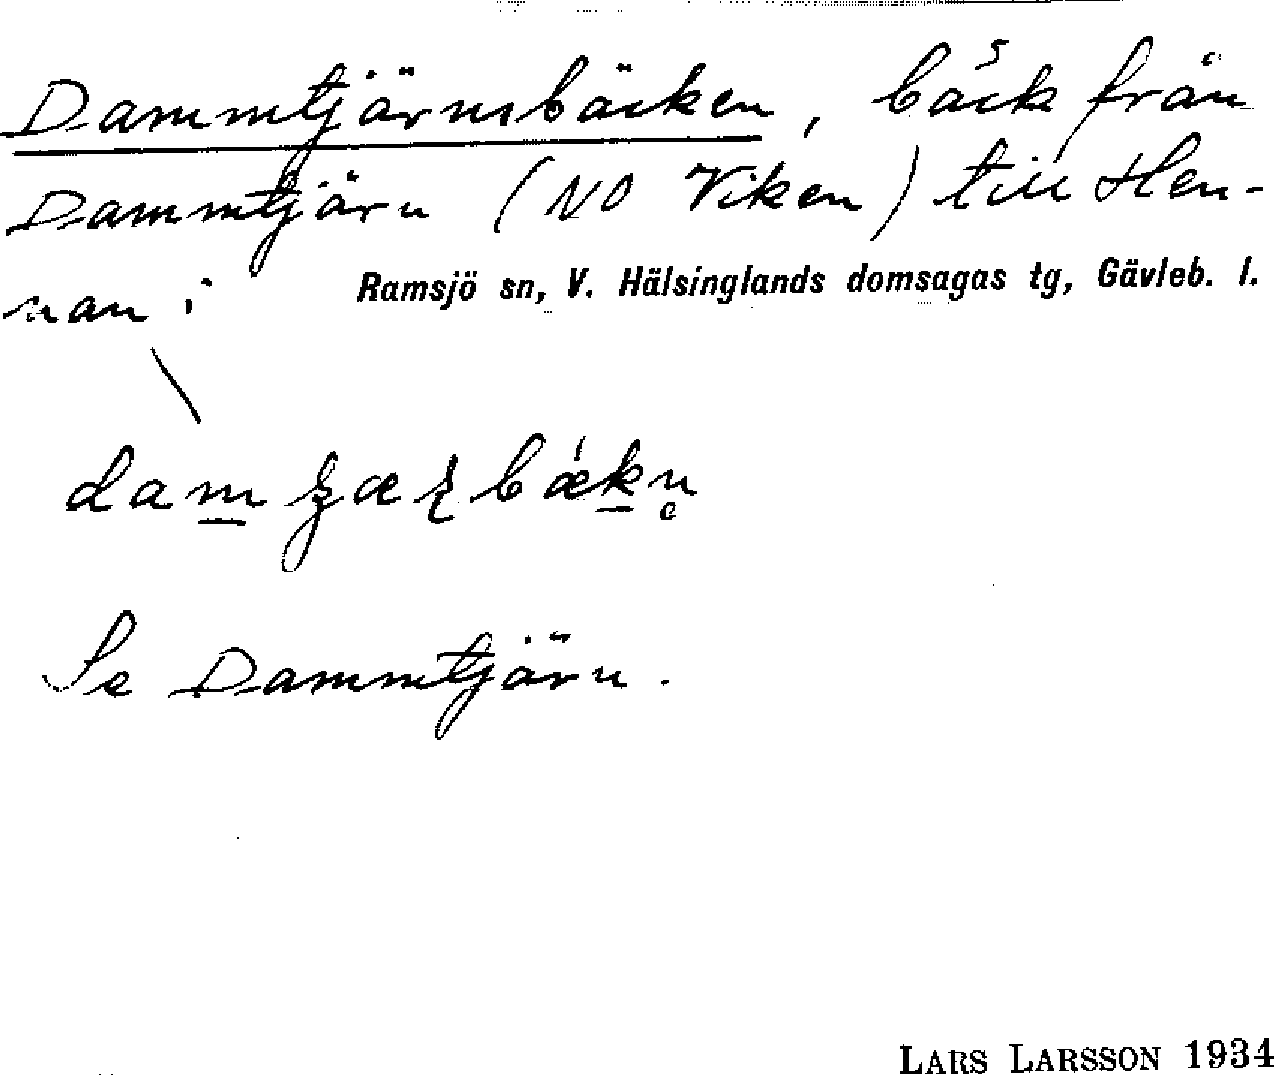 Dammtjärnsbäcken, bäck från
Dammtjärn (NO Viken) till Hen-
nan i Ramsjö sn, V. Hälsinglands domsagas tg, Gävleb. l.
Se Dammtjärn.
LARS LARSSON 1934